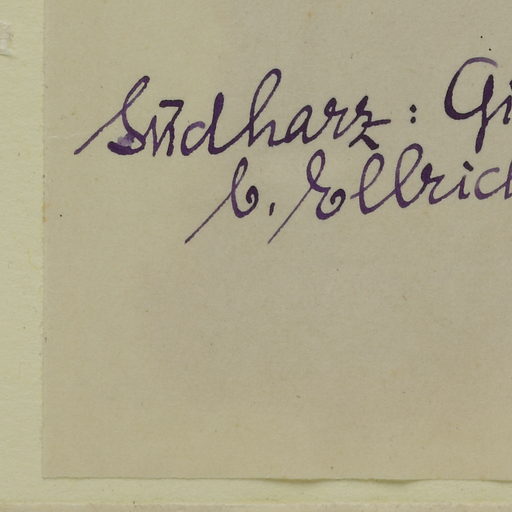 Südharz: Gi
b. Ellrich